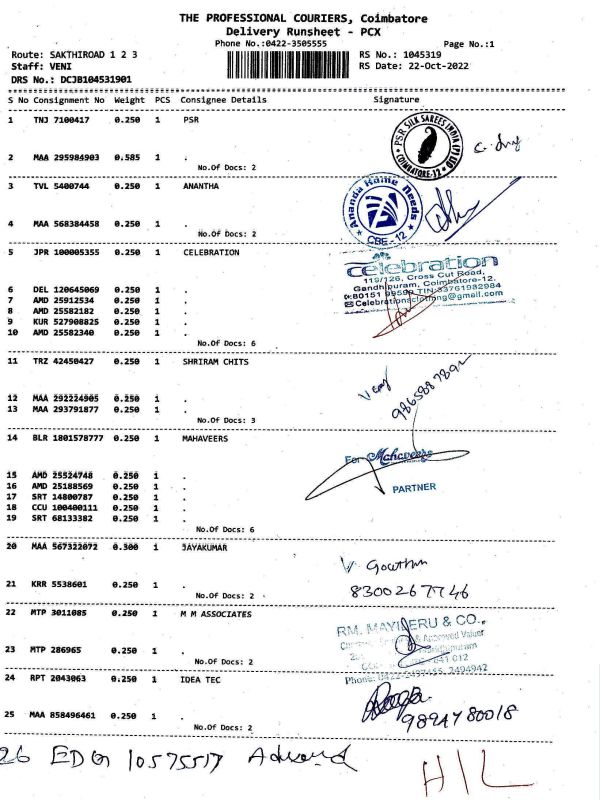 THE PROFESSIONAL COURIERS, Coimbatore
Delivery Runsheet - PCX
Phone No.:0422-3505555
Page No.:1
Route: SAKTHIROAD 1 2 3
RS No.: 1045319
Staff: VENI
RS Date: 22-Oct-2022
DRS No.: DCJB104531901
S No Consignment No Weight PCS Consignee Details Signature
1 TNJ 7100417 0.250 1 PSR
PSR SILK SAREES INDIA (P) LTD
COIMBATORE-12
2 MAA 295984903 0.585 1 .
No.Of Docs: 2
3 TVL 5400744 0.250 1 ANANTHA
Ananda Home Needs
CBE - 12
4 MAA 568384458 0.250 1 .
No.Of Docs: 2
5 JPR 100005355 0.250 1 CELEBRATION
celebration
119/126, Cross Cut Road,
Gandhipuram, Coimbatore-12.
Celebrationsclothing@gmail.com
6 DEL 120645069 0.250 1 .
7 AMD 25912534 0.250 1 .
8 AMD 25582182 0.250 1 .
9 KUR 527908825 0.250 1 .
10 AMD 25582340 0.250 1 .
No.Of Docs: 6
11 TRZ 42450427 0.250 1 SHRIRAM CHITS
12 MAA 292224905 0.250 1 .
13 MAA 293791877 0.250 1 .
No.Of Docs: 3
14 BLR 1801578777 0.250 1 MAHAVEERS
For Mahaveers
PARTNER
15 AMD 25524748 0.250 1 .
16 AMD 25188569 0.250 1 .
17 SRT 14800787 0.250 1 .
18 CCU 100400111 0.250 1 .
19 SRT 68133382 0.250 1 .
No.Of Docs: 6
20 MAA 567322072 0.300 1 JAYAKUMAR
21 KRR 5538601 0.250 1 .
8300267746
No.Of Docs: 2
22 MTP 3011085 0.250 1 M M ASSOCIATES
RM. MAYILERU & CO.,
& Approved Valuer
641 012
23 MTP 286965 0.250 1 .
No.Of Docs: 2
24 RPT 2043063 0.250 1 IDEA TEC
9894780018
25 MAA 858496461 0.250 1 .
No.Of Docs: 2
26 EDG
H/L